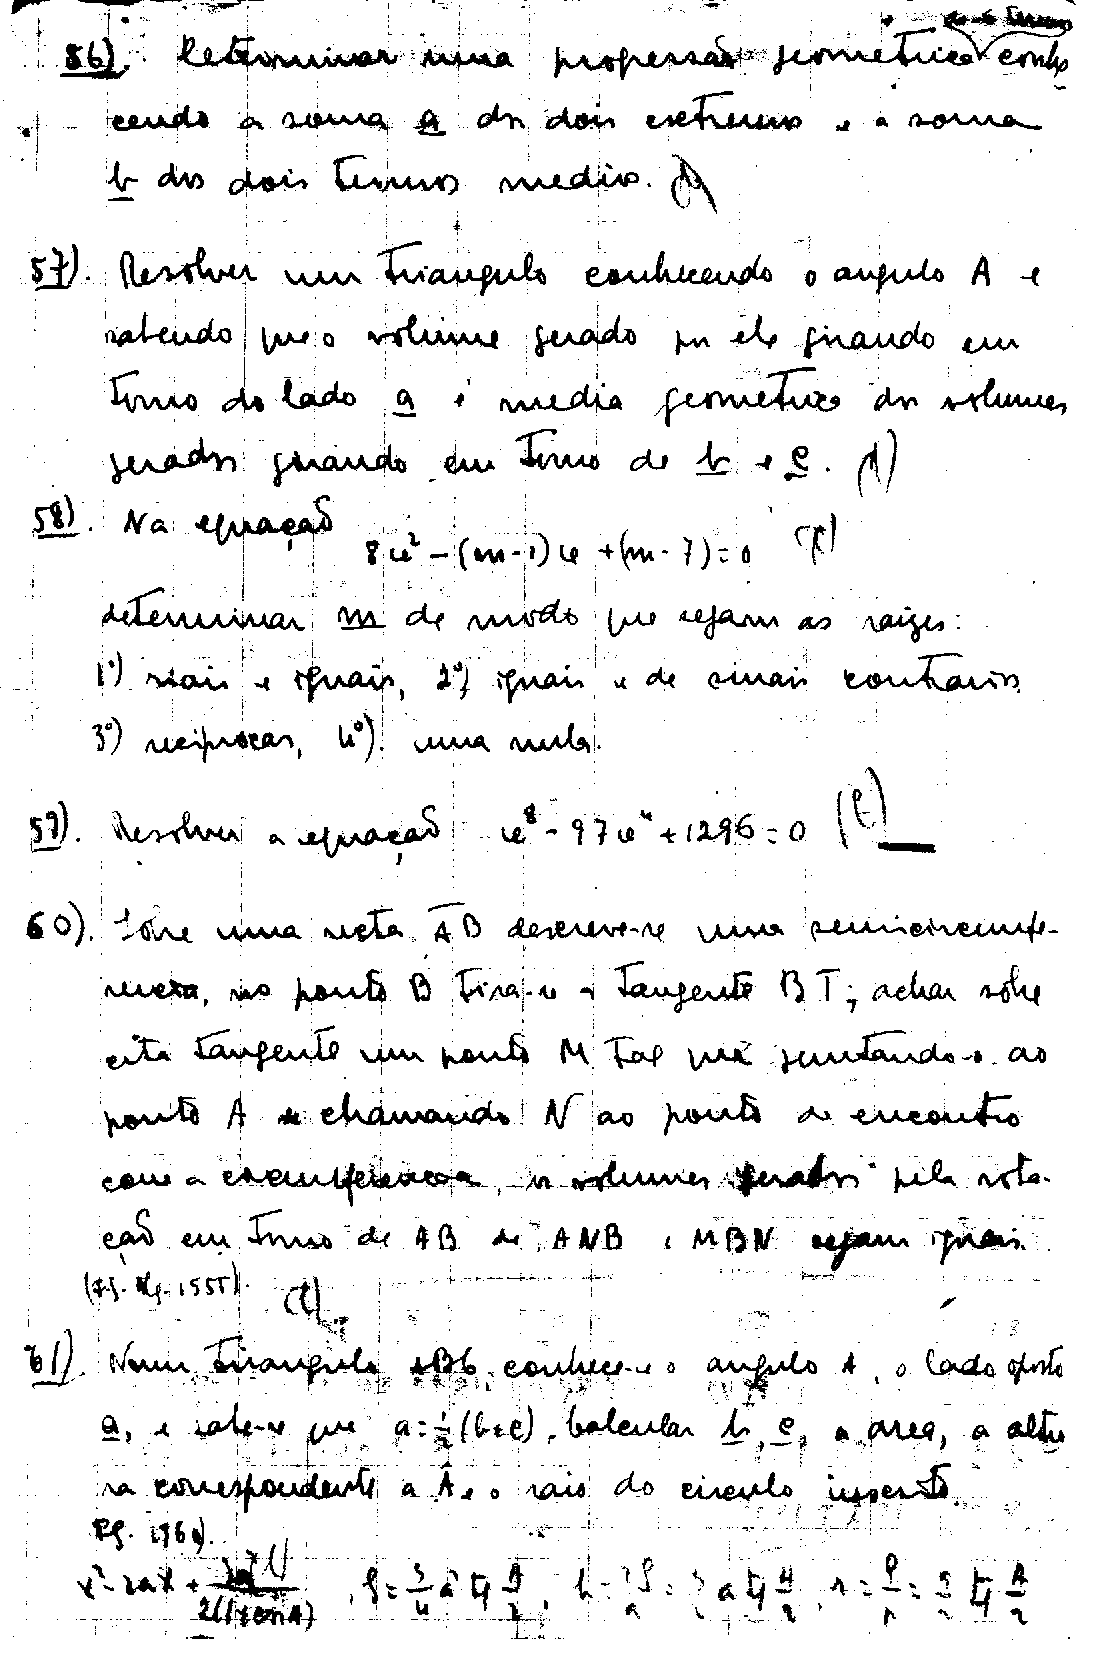 de 4 termos
56). Determinar uma progressão geometrica conhe
cendo a soma a dos dois extremos e a soma
b dos dois termos medios. (A)
57). Resolver um triangulo conhecendo o angulo A e
sabendo que o volume gerado por ele girando em
torno do lado a é media geometrica dos volumes
gerados girando em torno de b e c. (A)
58). Na equação
8x² - (m-1)x + (m-7) = 0
determinar m de modo que sejam as raizes:
1º) reais e iguais, 2º) iguais e de sinais contrarios,
3º) reciprocas, 4º). uma nula.
59). Resolver a equação x⁸ - 97x⁴ + 1296 = 0 (E)
60). Sôbre uma reta AB descreve-se uma semicircumfe-
rencia, no ponto B tira-se a tangente BT; achar sobre
esta tangente um ponto M tal que juntando-o ao
ponto A e chamando N ao ponto de encontro
com a circumferencia, os volumes gerados pela rota-
ção em torno de AB de ANB e MBN sejam iguais.
1555). (E)
61). Num triangulo ABC, conhece-se o angulo A, o lado oposto
a, e sabe-se que a = ½(b+c). Calcular b, c, a area, a altu
ra correspondente a A e o raio do circulo inscrito.
x² - 2ax + 3a²/2(1+cos A), S = 3/4 a² tg A/2, h = 2S/a = 3/2 a tg A/2, r = S/p = a/2 tg A/2